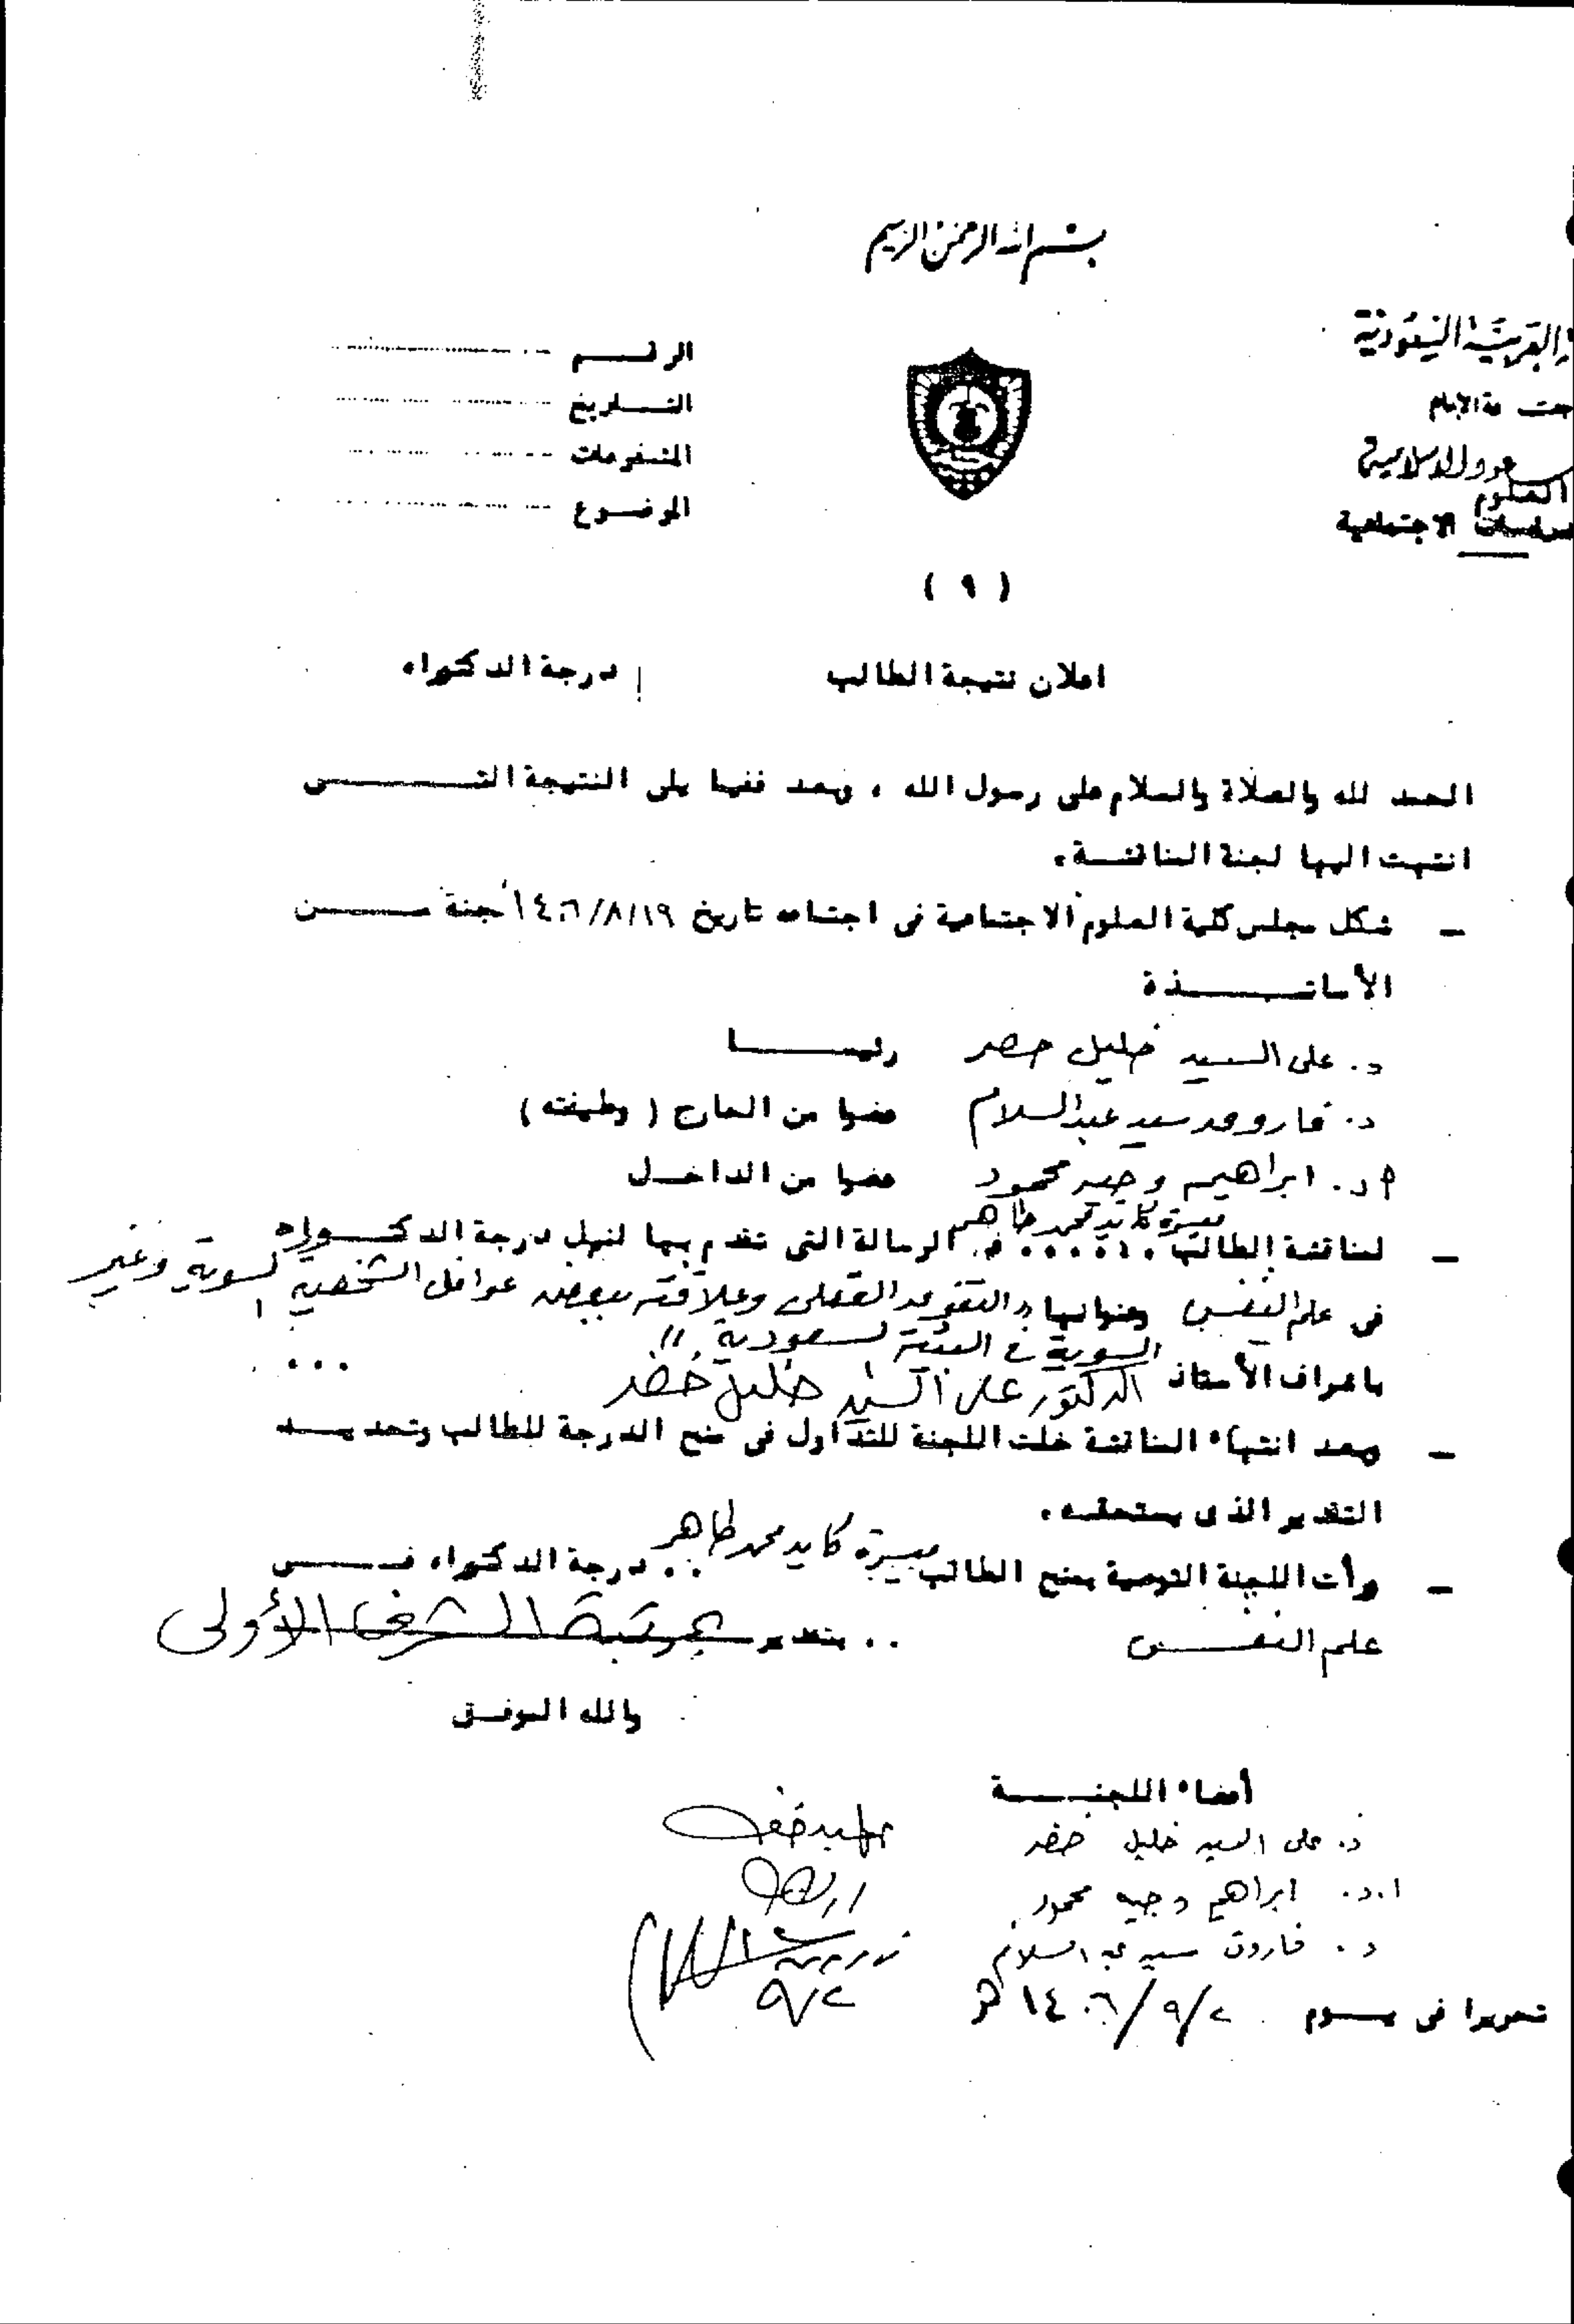 بسم الله الرحمن الرحيم
العربية السعودية
الرقم
جامعة الإمام
التاريخ
سعود الإسلامية
المشفوعات
العلوم
الاجتماعية
الموضوع
( ٩ )
اعلان نتيجة الطالب درجة الدكتوراه
الحمد لله والصلاة والسلام على رسول الله ، وبعد ففيما يلى النتيجة التى
انتهت اليها لجنة المناقشة.
- شكل مجلس كلية العلوم الاجتماعية فى اجتماعه تاريخ ١٤٠٦/٨/١٩ لجنة من
الأساتذة
د. على السيد خليل خضر رئيسا
د. فاروق سيد عبدالسلام عضوا من الخارج ( وظيفته )
أ د. ابراهيم وجيه محمود عضوا من الداخل
- لمناقشة الطالب ميسرة كايد محمد طاهر فى الرسالة التى تقدم بها لنيل درجة الدكتوراه
فى علم النفس وعنوانها " التفوق العقلى وعلاقته ببعض عوامل الشخصية السوية وغير
السوية فى البيئة السعودية "
باشراف الأستاذ الدكتور على السيد خليل خضر ...
- وبعد انتهاء المناقشة خلت اللجنة للتداول فى منح الدرجة للطالب وتحديد
التقدير الذى يستحقه.
- ورأت اللجنة التوصية بمنح الطالب ميسرة كايد محمد طاهر .. درجة الدكتوراه فى
علم النفس .. بتقدير بمرتبة الشرف الأولى
والله الموفق
أعضاء اللجنة
د. على السيد خليل خضر
ا.د. ابراهيم وجيه محمود
د. فاروق سيد عبد السلام
تحريرا فى يوم ١٤٠٦/٩/٢ هـ